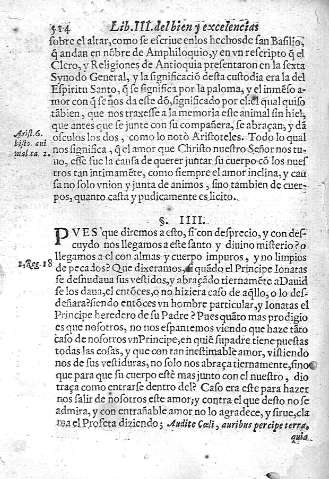 514 Lib. III. del bien y excelencias
sobre el altar, como se escriue en los hechos de san Basilio,
q̃ andan en nõbre de Amphiloquio, y en vn rescripto q̃ el
Clero, y Religiones de Antioquia presentaron en la sexta
Synodo General, y la significaciõ desta custodia era la del
Espiritu Santo, q̃ se significa por la paloma, y el inmẽso a-
mor con q̃ se ños da este dõ, significado por el: el qual quiso
tãbien, que nos traxesse a la memoria este animal sin hiel,
que antes que se junte con su compañera, se abraçan, y dã
Arist. 6. osculos los dos, como lo notò Aristoteles. Todo lo qual
histo. ani nos significa, q̃ el amor que Christo nuestro Señor nos tu-
mal. ca. 2. uo, esse fue la causa de querer juntar su cuerpo cõ los nues
tros tan intimamẽte, como siempre el amor inclina, y cau
sa no solo vnion y junta de animos, sino tambien de cuer-
pos, quanto casta y pudicamente es licito.
§. IIII.
PVES que diremos a esto, si con desprecio, y con des-
cuydo nos llegamos a este santo y diuino misterio? o
llegamos a el con almas y cuerpo impuros, y no limpios
1. Reg. 18 de pecados? Que dixeramos, si quãdo el Principe Ionatas
se desnudaua sus vestidos, y abraçãdo tiernamẽte a Dauid
se los daua, el entõces, o no hiziera caso de aq̃llo, o lo des-
deñara? siendo entõces vn hombre particular, y Ionatas el
Principe heredero de su Padre? Pues quãto mas prodigio
es que nosotros, no nos espantemos viendo que haze tãto
caso de nosotros vn Principe, en quiẽ su padre tiene puestas
todas las cosas, y que con tan inestimable amor, vistiendo
nos de sus vestiduras, no solo nos abraça tiernamente, sino
que para que su cuerpo estè mas junto con el nuestro, dio
traça como entrarse dentro del? Caso era este para hazer
nos salir de nosotros este amor; y contra el que desto no se
admira, y con entrañable amor no lo agradece, y sirue, cla
ma el Profeta diziendo; Audite Cœli, auribus percipe terra,
quia